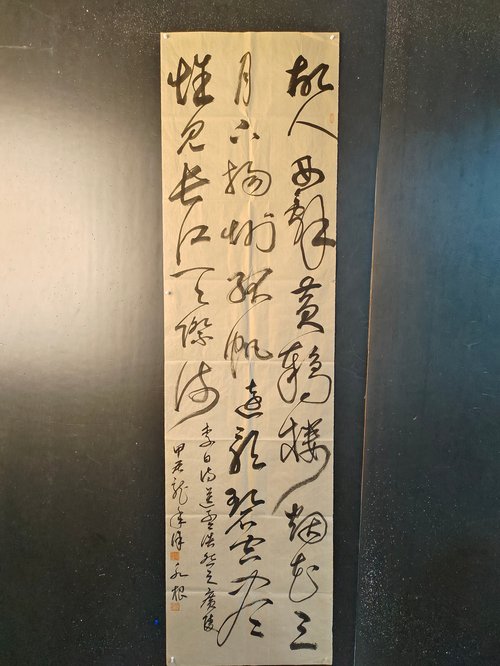 故人西辭黄鶴楼烟花三
月下揚州孤帆遠影碧空尽
惟見長江天際流
李白詩送孟浩然之廣陵
甲辰龍年 永根